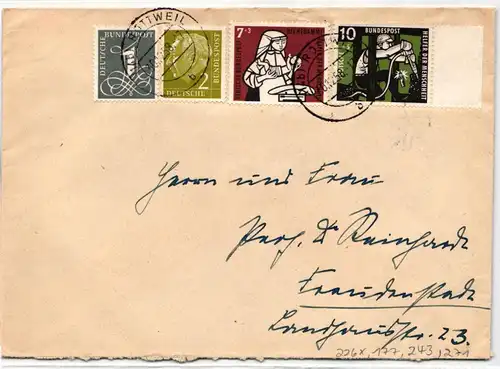 ROTTWEIL
DEUTSCHE BUNDESPOST
2
DEUTSCHE BUNDESPOST
7+3
DIE HEBAMME
10
BUNDESPOST
HELFER DER MENSCHHEIT
Herrn und Frau
Prof. Dr Reinhardt
Freudenstadt
Landhausstr. 23.
226x, 177, 243, 271